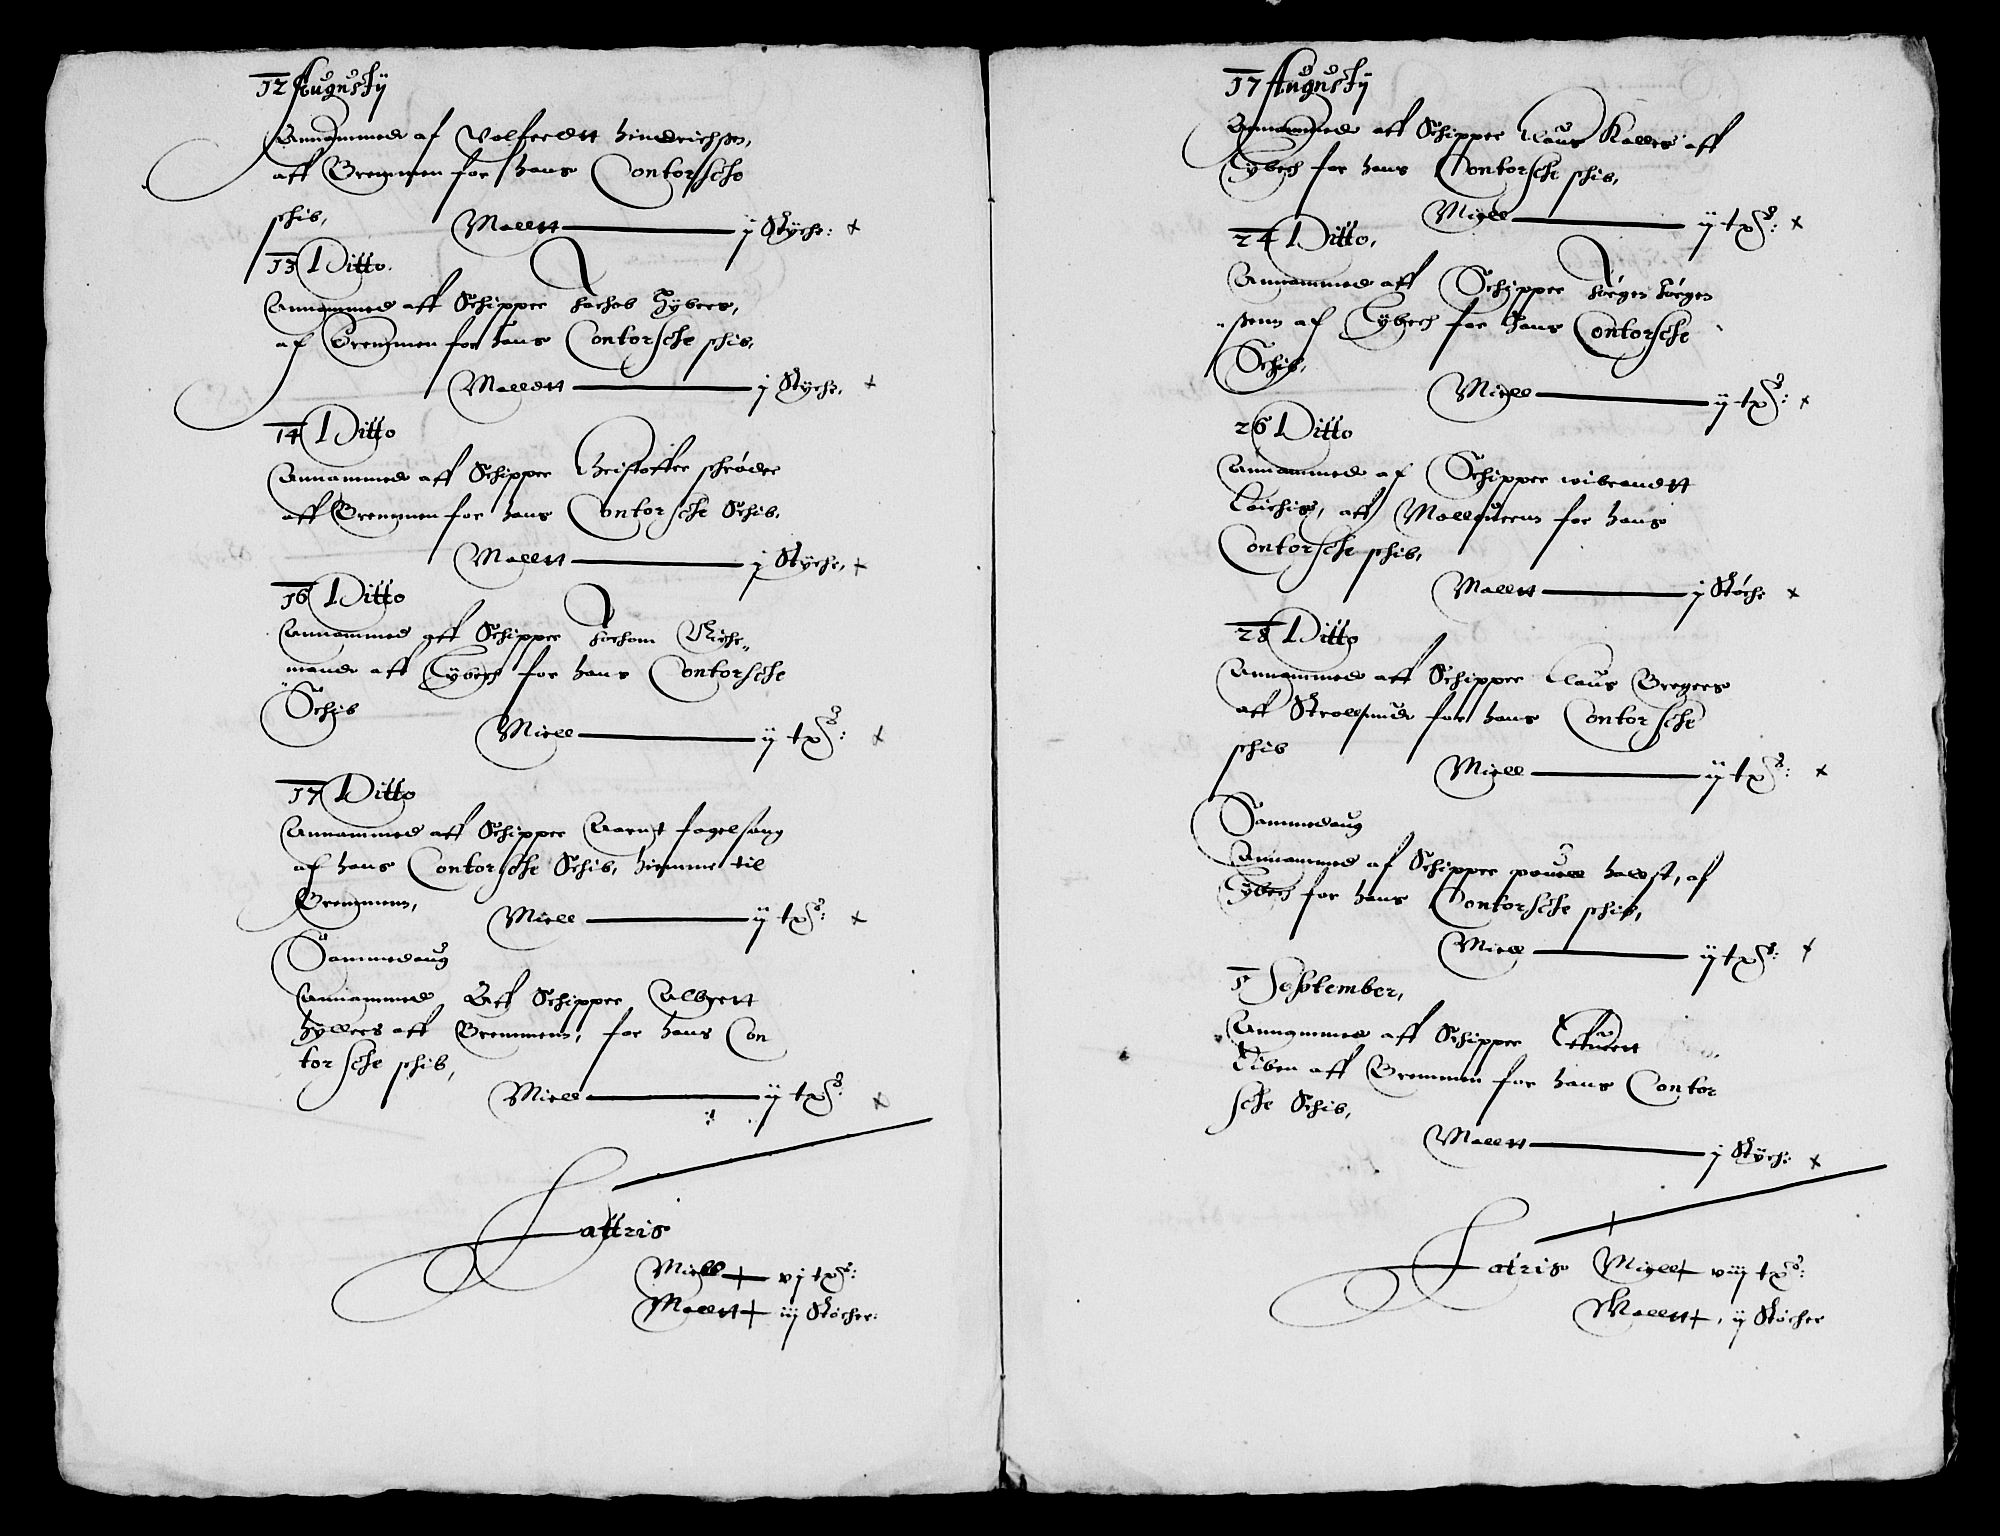 12 Augustij
Annammed af Volferdtt Hindrichsen,
aff Bremmen for hans Contorsche
schib,
Malltt — j Stÿche: +
13 Ditto.
Annammed aff Schipper Jachob Hÿbers,
af Bremmen for hans Contorsche schib,
Malldtt — j Stÿche, +
14 Ditto
Annammed aff Schipper Christoffer schrøder
aff Bremmen for hans Contorsche Schib,
Malltt — j Stÿche, +
16 Ditto
Annammed aff Schipper Jochom Riche„
mand aff Lÿbech for hans Contorsche
Schib
Miell — ij tr: +
17 Ditto
Annammed aff Schipper Aarnt fogelsang
af hans Contorsche Schib, hiemme til
Bremmenn,
Miell — ij tr: +
Sammedaug
Annammed Aff Schipper Albrett
Hÿllers aff Bremmenn, for hans Con
torsche schib,
Miell — ij tr: +
Lattris
Miell + vj tr:
Malltt + iij Støcher:
17 Augustij
Annammed aff Schipper Claus Kalles aff
Lÿbech for hans Contorsche schib,
Miell — ij tr: +
24 Ditto,
Annammed aff Schipper Jørgen Jørgen
senn af Lÿbech for hans Contorsche
Schib,
Miell — ij tr: +
26 Ditto
Annammed af Schipper wibrandtt
aff for hans
Contorsche schib,
Malltt — j Støche +
28 Ditto
Annammed aff Schipper Claus Gregers
aff Strollsund for hans Contorsche
schib
Miell — ij tr: +
Sammedaug
Annammed af Schipper povell af
Lÿbech for hans Contorsche schib,
Miell — ij tr: +
September,
Annammed aff Schipper
Tiben aff Bremmen for hans Contor
sche Schib,
Malltt — j Stÿche: +
Latris Miell + viij tr:
Malltt +, ij Støcher